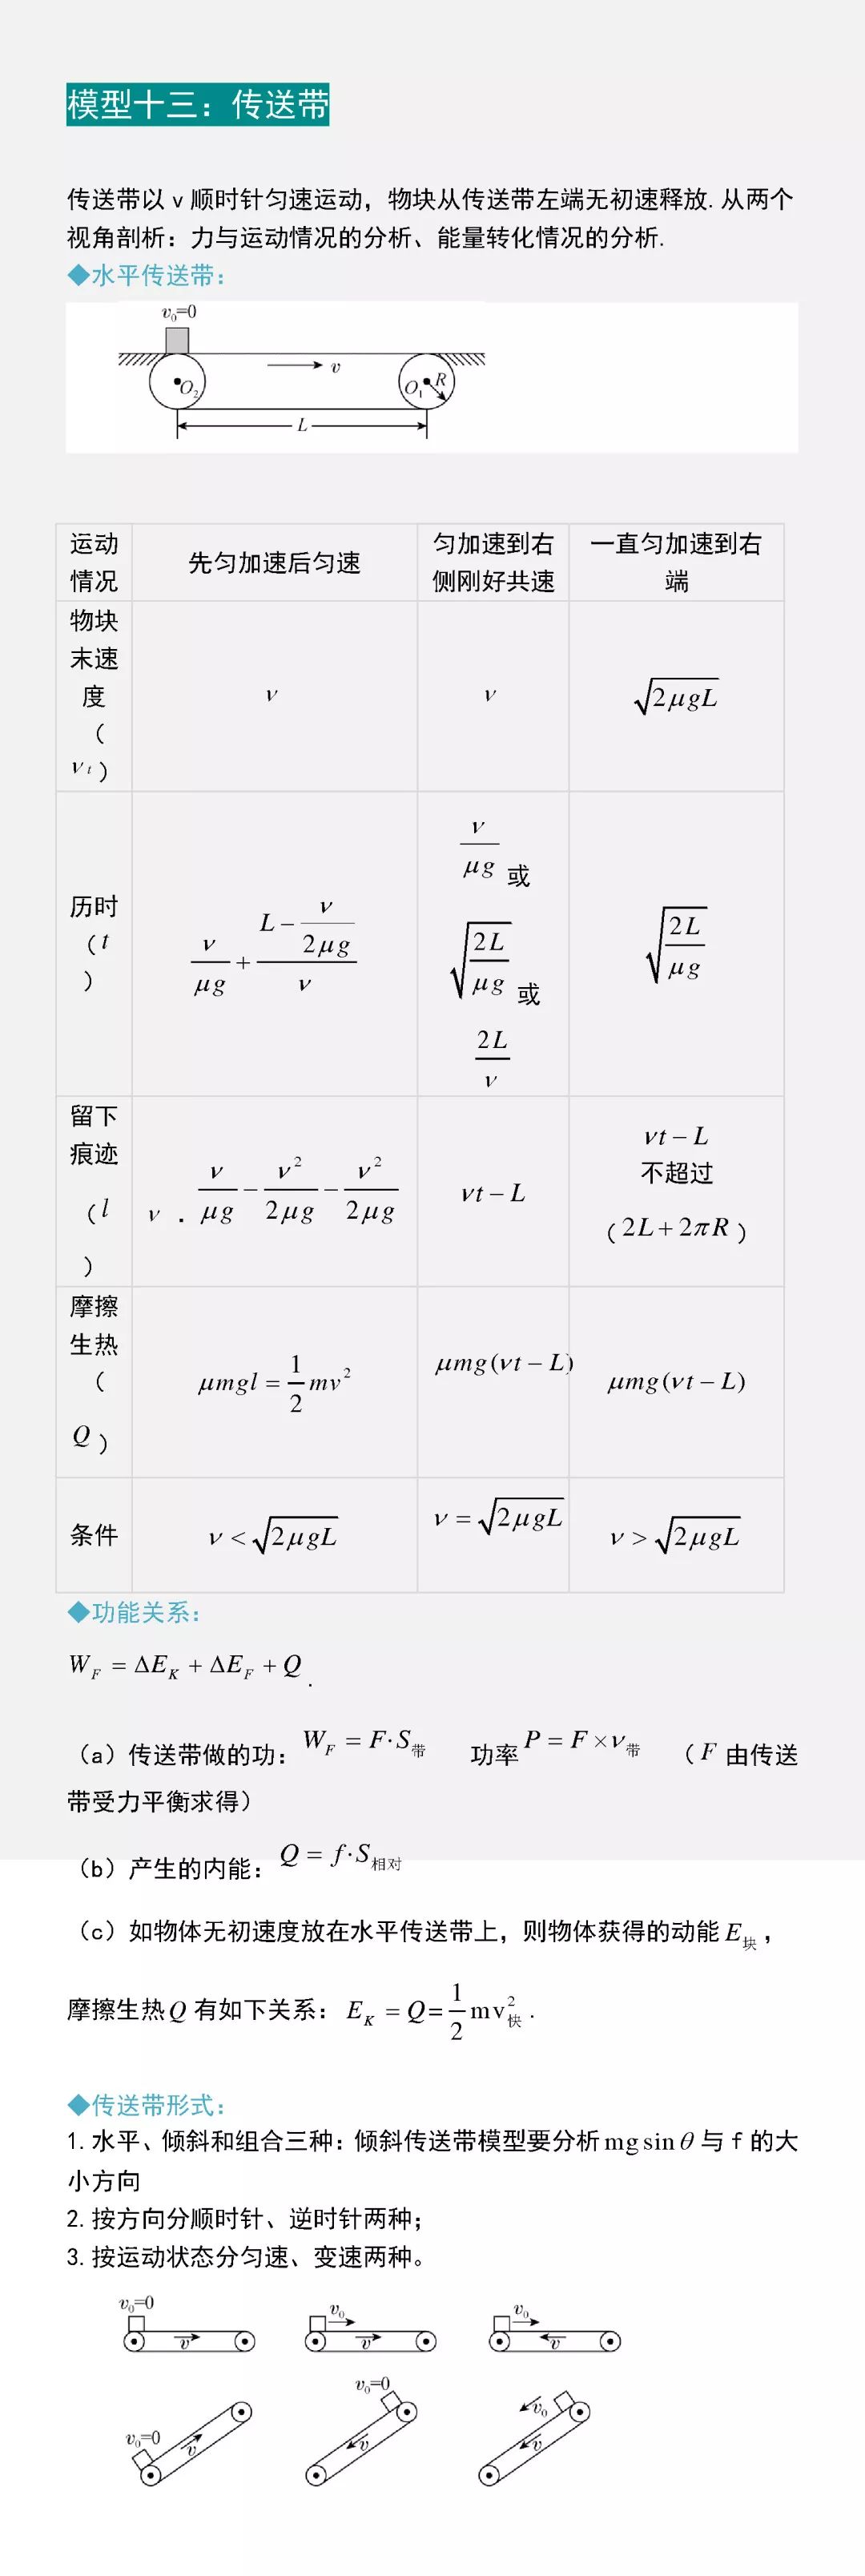 模型十三：传送带
传送带以 v 顺时针匀速运动，物块从传送带左端无初速释放. 从两个
视角剖析：力与运动情况的分析、能量转化情况的分析.
◆水平传送带：
v₀=0
v
O₂
O₁ R
L
运动
情况
先匀加速后匀速
匀加速到右
侧刚好共速
一直匀加速到右
端
物块
末速
度
（
v t ）
v
v
√(2μgL)
历时
（t
）
v/(μg) + (L − v/(2μg))/v
v/(μg) 或
√(2L/(μg)) 或
2L/v
√(2L/(μg))
留下
痕迹
（l
）
v · v/(μg) − v²/(2μg) − v²/(2μg)
vt − L
vt − L
不超过
（2L+2πR）
摩擦
生热
（
Q ）
μmgl = 1/2 mv²
μmg(vt − L)
μmg(vt − L)
条件
v < √(2μgL)
v = √(2μgL)
v > √(2μgL)
◆功能关系：
W_F = ΔE_K + ΔE_F + Q .
（a）传送带做的功：W_F = F·S带 功率 P = F×v带 （F 由传送
带受力平衡求得）
（b）产生的内能：Q = f·S相对
（c）如物体无初速度放在水平传送带上，则物体获得的动能 E块，
摩擦生热 Q 有如下关系：E_K = Q = 1/2 mv²快 .
◆传送带形式：
1. 水平、倾斜和组合三种：倾斜传送带模型要分析 mg sin θ 与 f 的大
小方向
2. 按方向分顺时针、逆时针两种；
3. 按运动状态分匀速、变速两种。
v₀=0
v
v₀
v
v₀
v
v₀=0
v
v₀=0
v
v₀
v